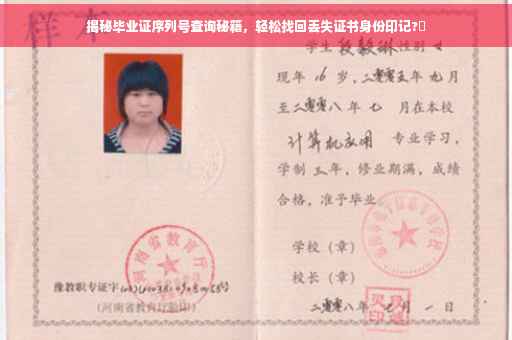 揭秘毕业证序列号查询秘籍，轻松找回丢失证书身份印记?
样本
学生段毅琳性别女
现年16岁，二零零五年九月
至二零零八年七 月在本校
计算机应用 专业学习，
学制三年，修业期满，成绩
合格，准予毕业
学校（章）
校长（章）
二零零八年 月一日
河南省教育厅
豫教职专证字
（河南省教育厅验印）